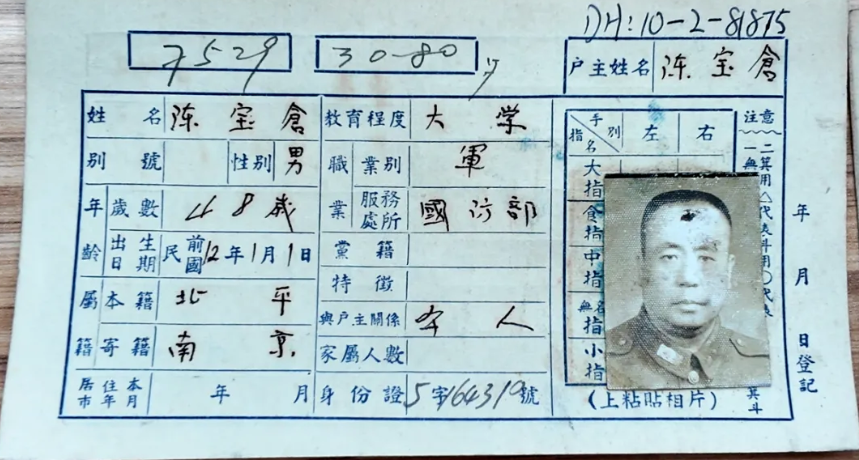 DH:10-2-81875
7529 30-80
戶主姓名 陈宝倉
姓名 陈宝倉 教育程度 大学
別號 性別 男 職業別 軍
年齡 歲數 48歲 職業 服務處所 國防部
出生日期 民國前12年1月1日 黨籍
特徵
屬籍 本籍 北平 與戶主關係 本人
寄籍 南京 家屬人數
居住本市年月 年 月 身份證 5字164319號
指名 手別 左 右
大指
食指
中指
無名指
小指
(上粘貼相片)
注意
二箕用△代表斗用○代表
一無
其斗
年 月 日登記